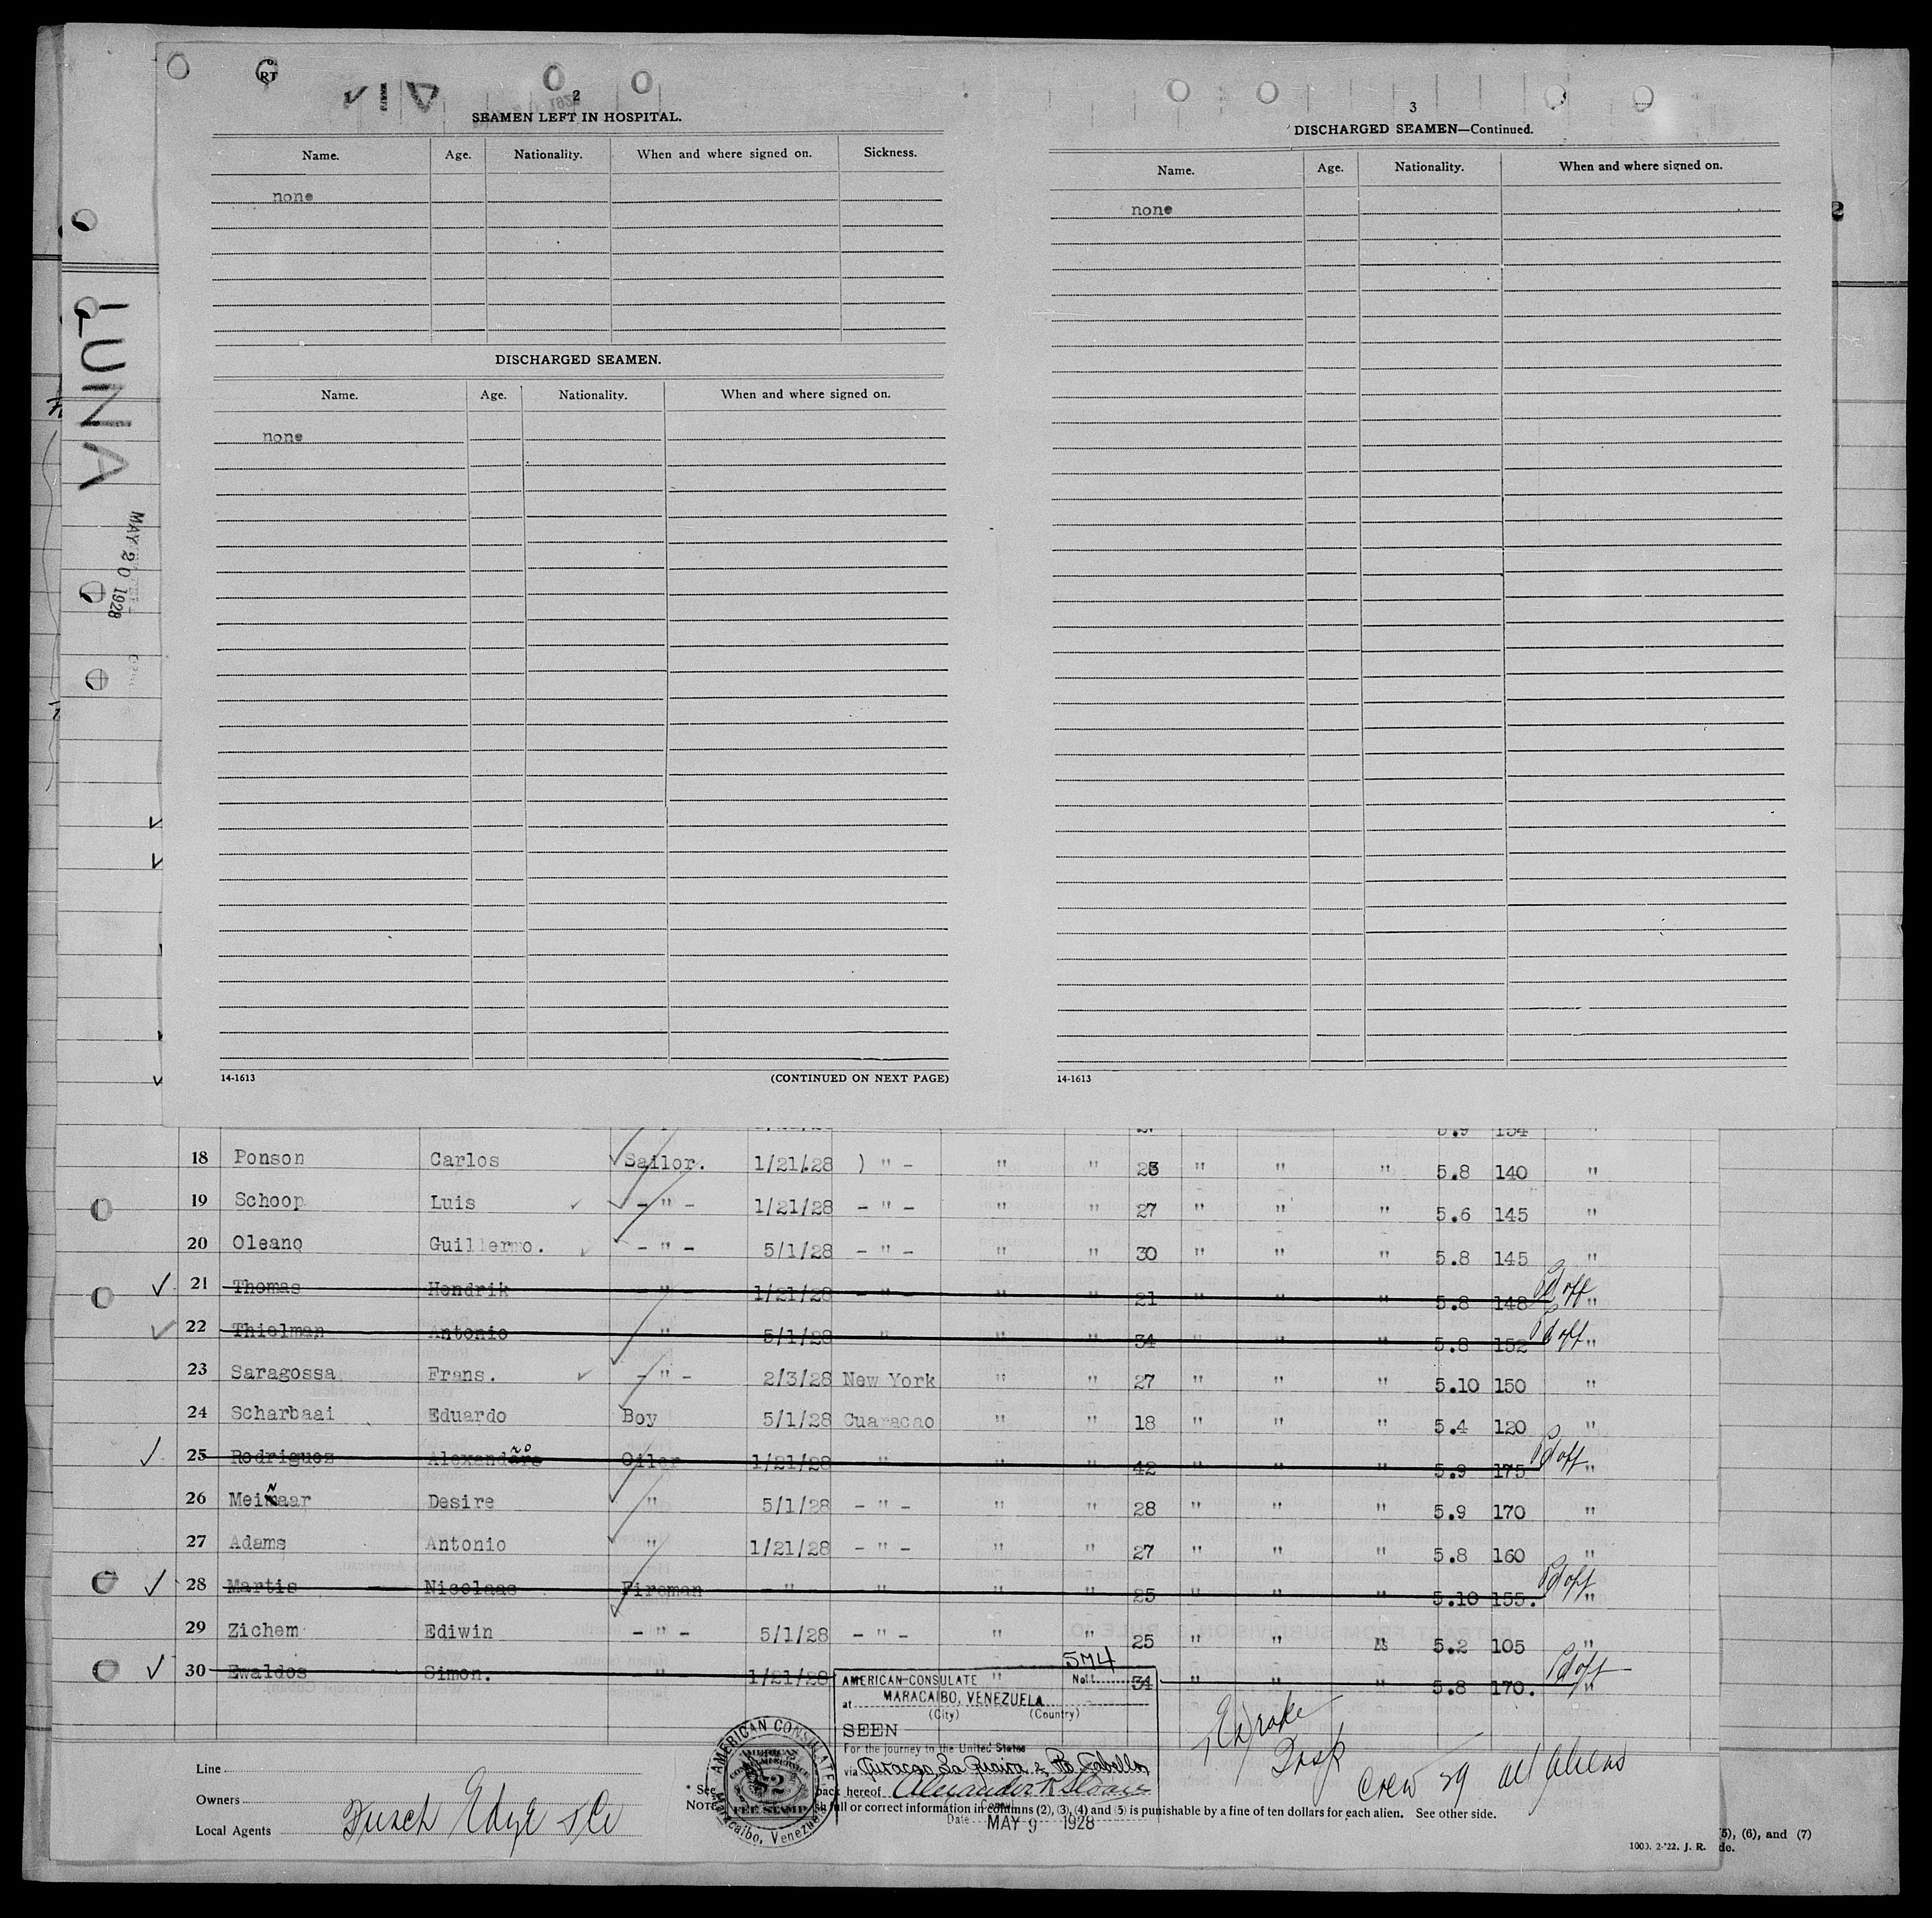 RT
2
SEAMEN LEFT IN HOSPITAL.
Name. Age. Nationality. When and where signed on. Sickness.
none
DISCHARGED SEAMEN.
Name. Age. Nationality. When and where signed on.
none
14-1613 (CONTINUED ON NEXT PAGE)
3
DISCHARGED SEAMEN—Continued.
Name. Age. Nationality. When and where signed on.
none
14-1613
LUNA
MAY 20 1928
5.9 154 "
18 Ponson Carlos Sailor. 1/21/28 ) " - " " 25 " " " 5.8 140 "
19 Schoop Luis - " - 1/21/28 - " - " " 27 " " " 5.6 145 "
20 Oleano Guillermo. - " - 5/1/28 - " - " " 30 " " " 5.8 145 "
21 Thomas Hendrik - " - 1/21/28 - " - " " 21 " " " 5.8 148 Pd off "
22 Thielman Antonio " 5/1/28 " " " 34 " " " 5.8 152 Pd off "
23 Saragossa Frans. - " - 2/3/28 New York " " 27 " " " 5.10 150 "
24 Scharbaai Eduardo Boy 5/1/28 Cuaracao " " 18 " " " 5.4 120 "
25 Rodriguez Alexandero Oiler 1/21/28 " " " 42 " " " 5.9 175 Pd off "
26 Meiñaar Desire " 5/1/28 - " - " " 28 " " " 5.9 170 "
27 Adams Antonio " 1/21/28 - " - " " 27 " " " 5.8 160 "
28 Martis Nicolaas Fireman - " - " " " 25 " " " 5.10 155. Pd off "
29 Zichem Ediwin - " - 5/1/28 - " - " " 25 " " " 5.2 105 "
30 Ewaldos Simon. " 1/21/28 " 34 " " " 5.8 170. Pd off "
AMERICAN CONSULATE No. 574
at MARACAIBO, VENEZUELA
(City) (Country)
SEEN
For the journey to the United States
via Curacao La Guaira & Pto Cabello
Alexander K. Sloan
Consul
Date MAY 9 1928
AMERICAN CONSULATE
Maracaibo, Venezuela
$2
FEE STAMP
Drake
Insp
Crew 29 all aliens
Line
Owners
Local Agents Funch Edye & Co
* See back hereof
NOTE full or correct information in columns (2), (3), (4) and (5) is punishable by a fine of ten dollars for each alien. See other side.
1000. 2-'22. J. R.
(5), (6), and (7)
de.